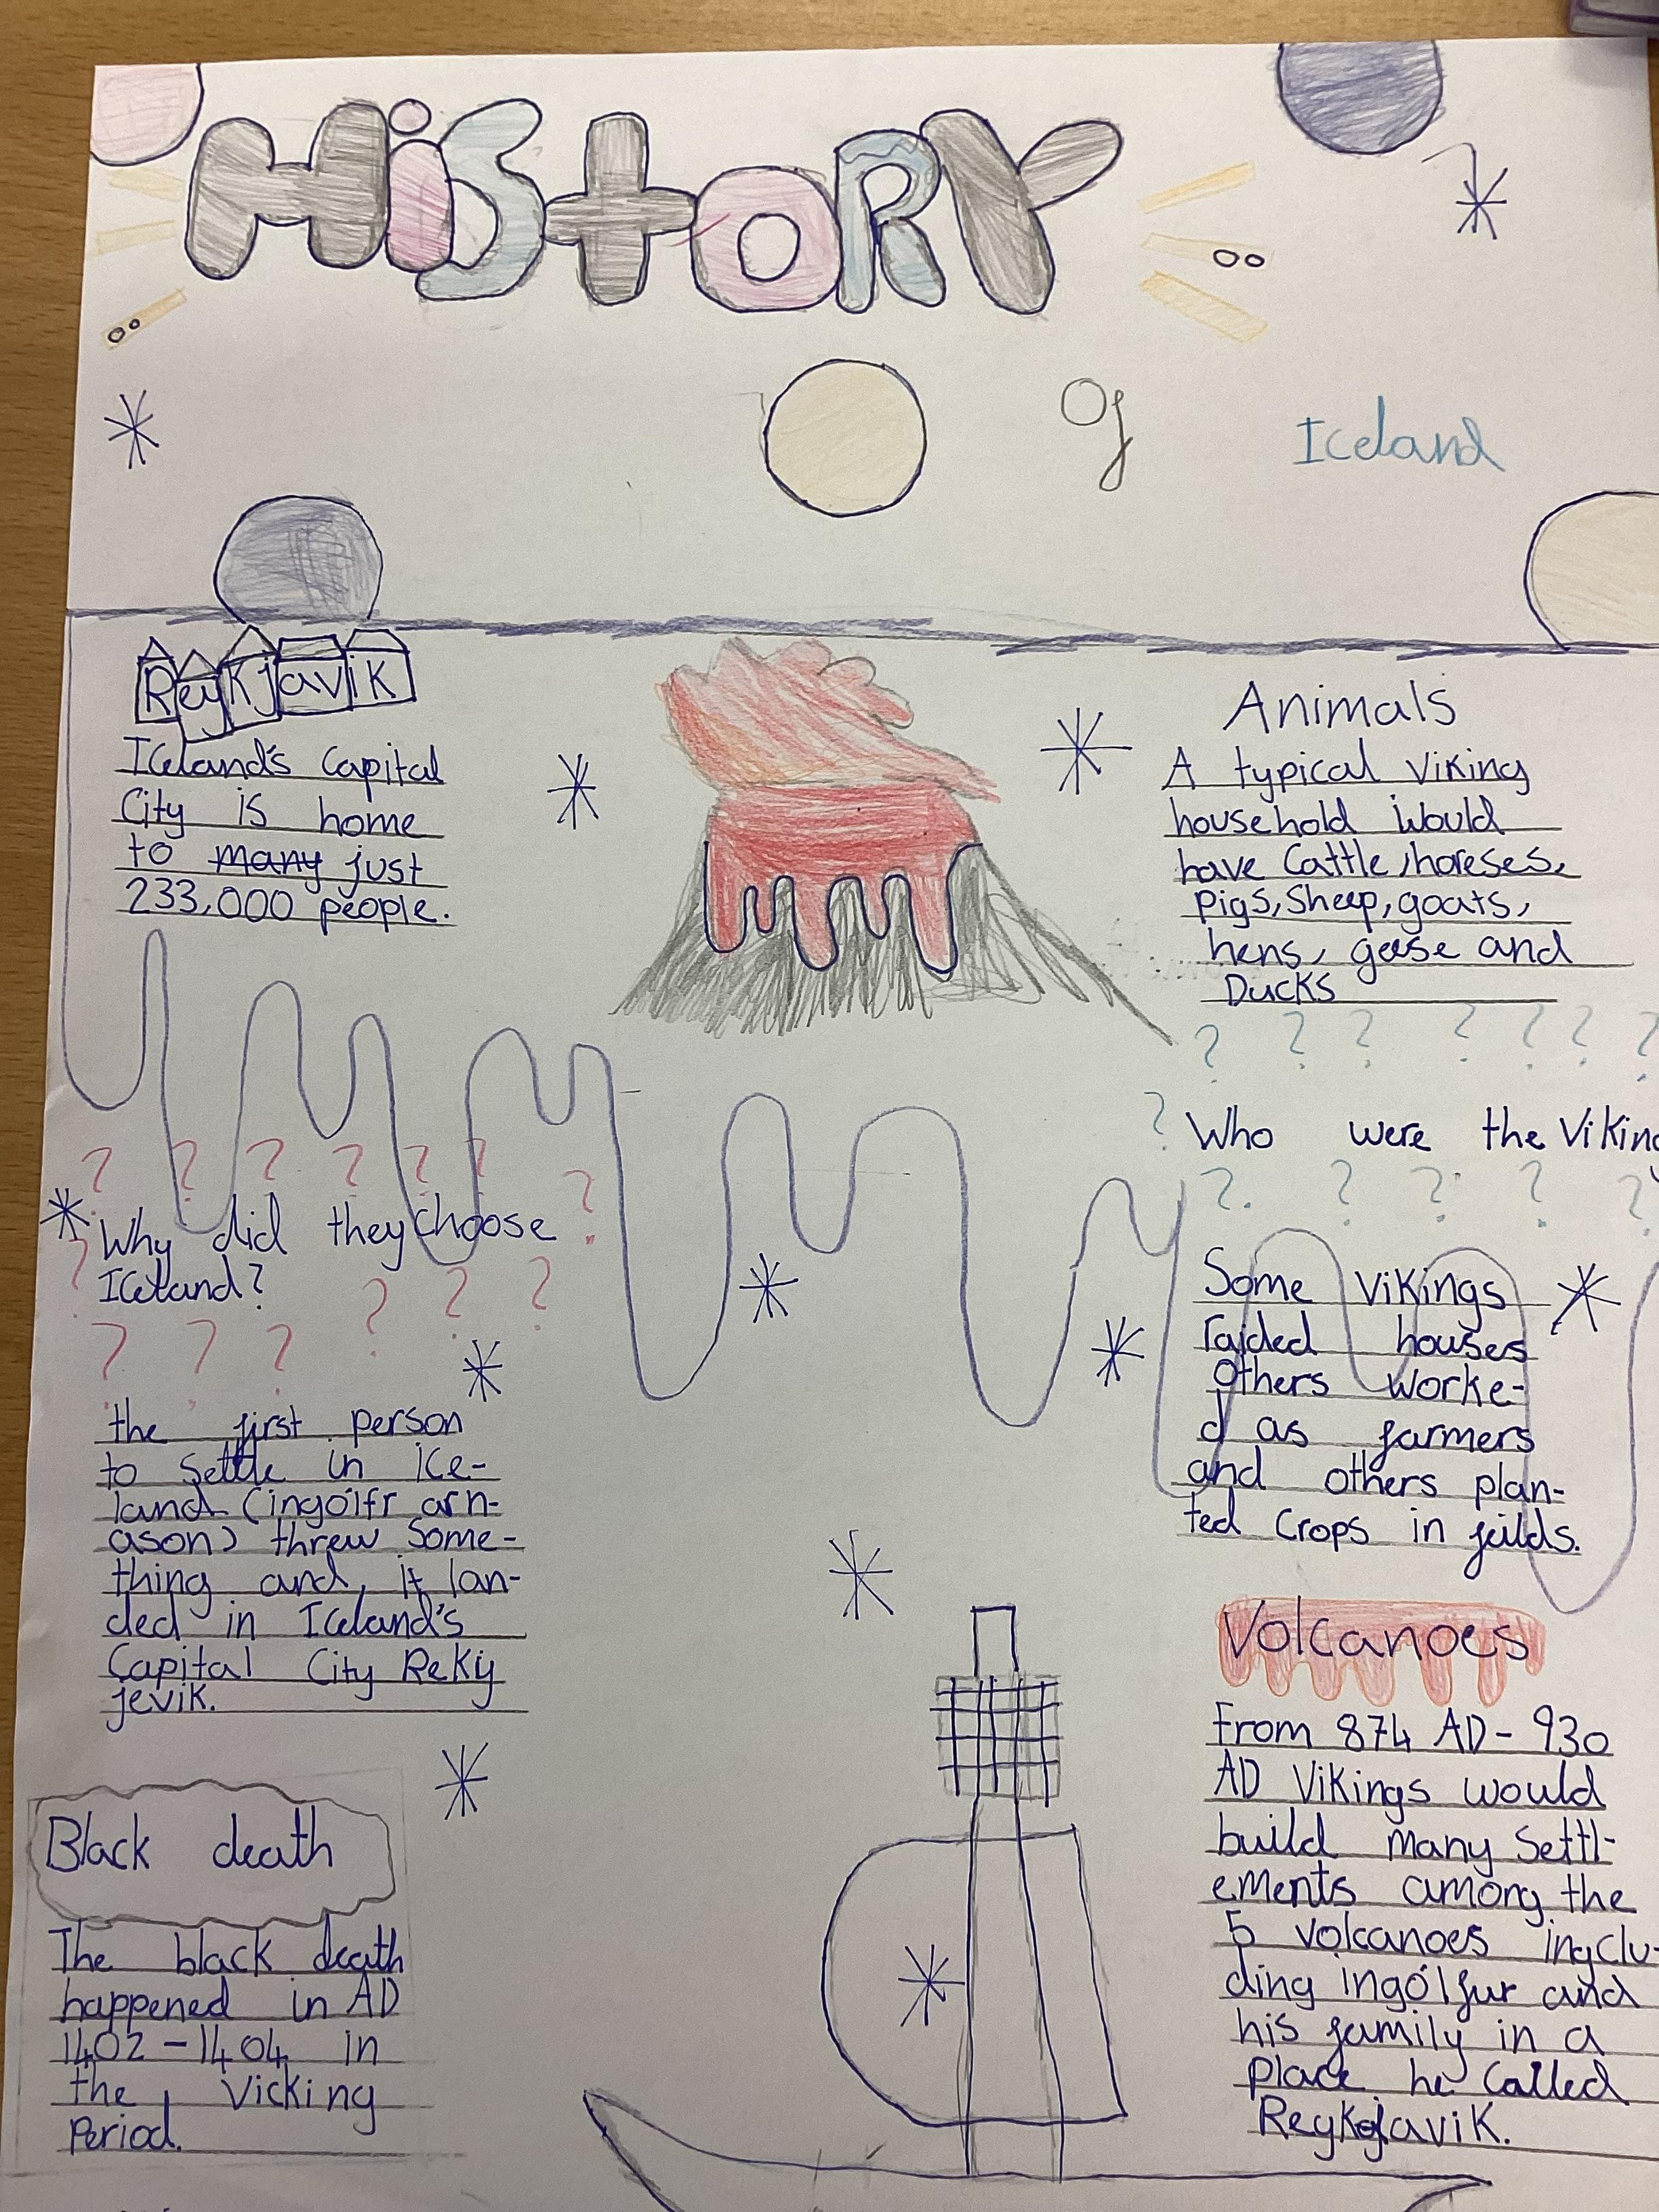 HiStORY
Of
Iceland
Reykjavik
Iceland's Capital
City is home
to many just
233,000 people.
Why did they choose
Iceland?
the first person
to settle in ice-
land (ingólfr arn-
ason) threw some-
thing and, it lan-
ded in Iceland's
Capital City Rekij
jevik.
Black death
The black death
happened in AD
1402-1404 in
the Vicking
Period.
Animals
A typical Viking
household would
have Cattle, horeses,
pigs, Sheep, goats,
hens, geese and
Ducks
Who were the Viking
Some Vikings
raided houses
others worke-
d as farmers
and others plan-
ted Crops in feilds.
Volcanoes
From 874 AD - 930
AD Vikings would
build many Settl-
ements among the
5 volcanoes inclu-
ding ingólfur and
his family in a
place he called
Reykjavik.